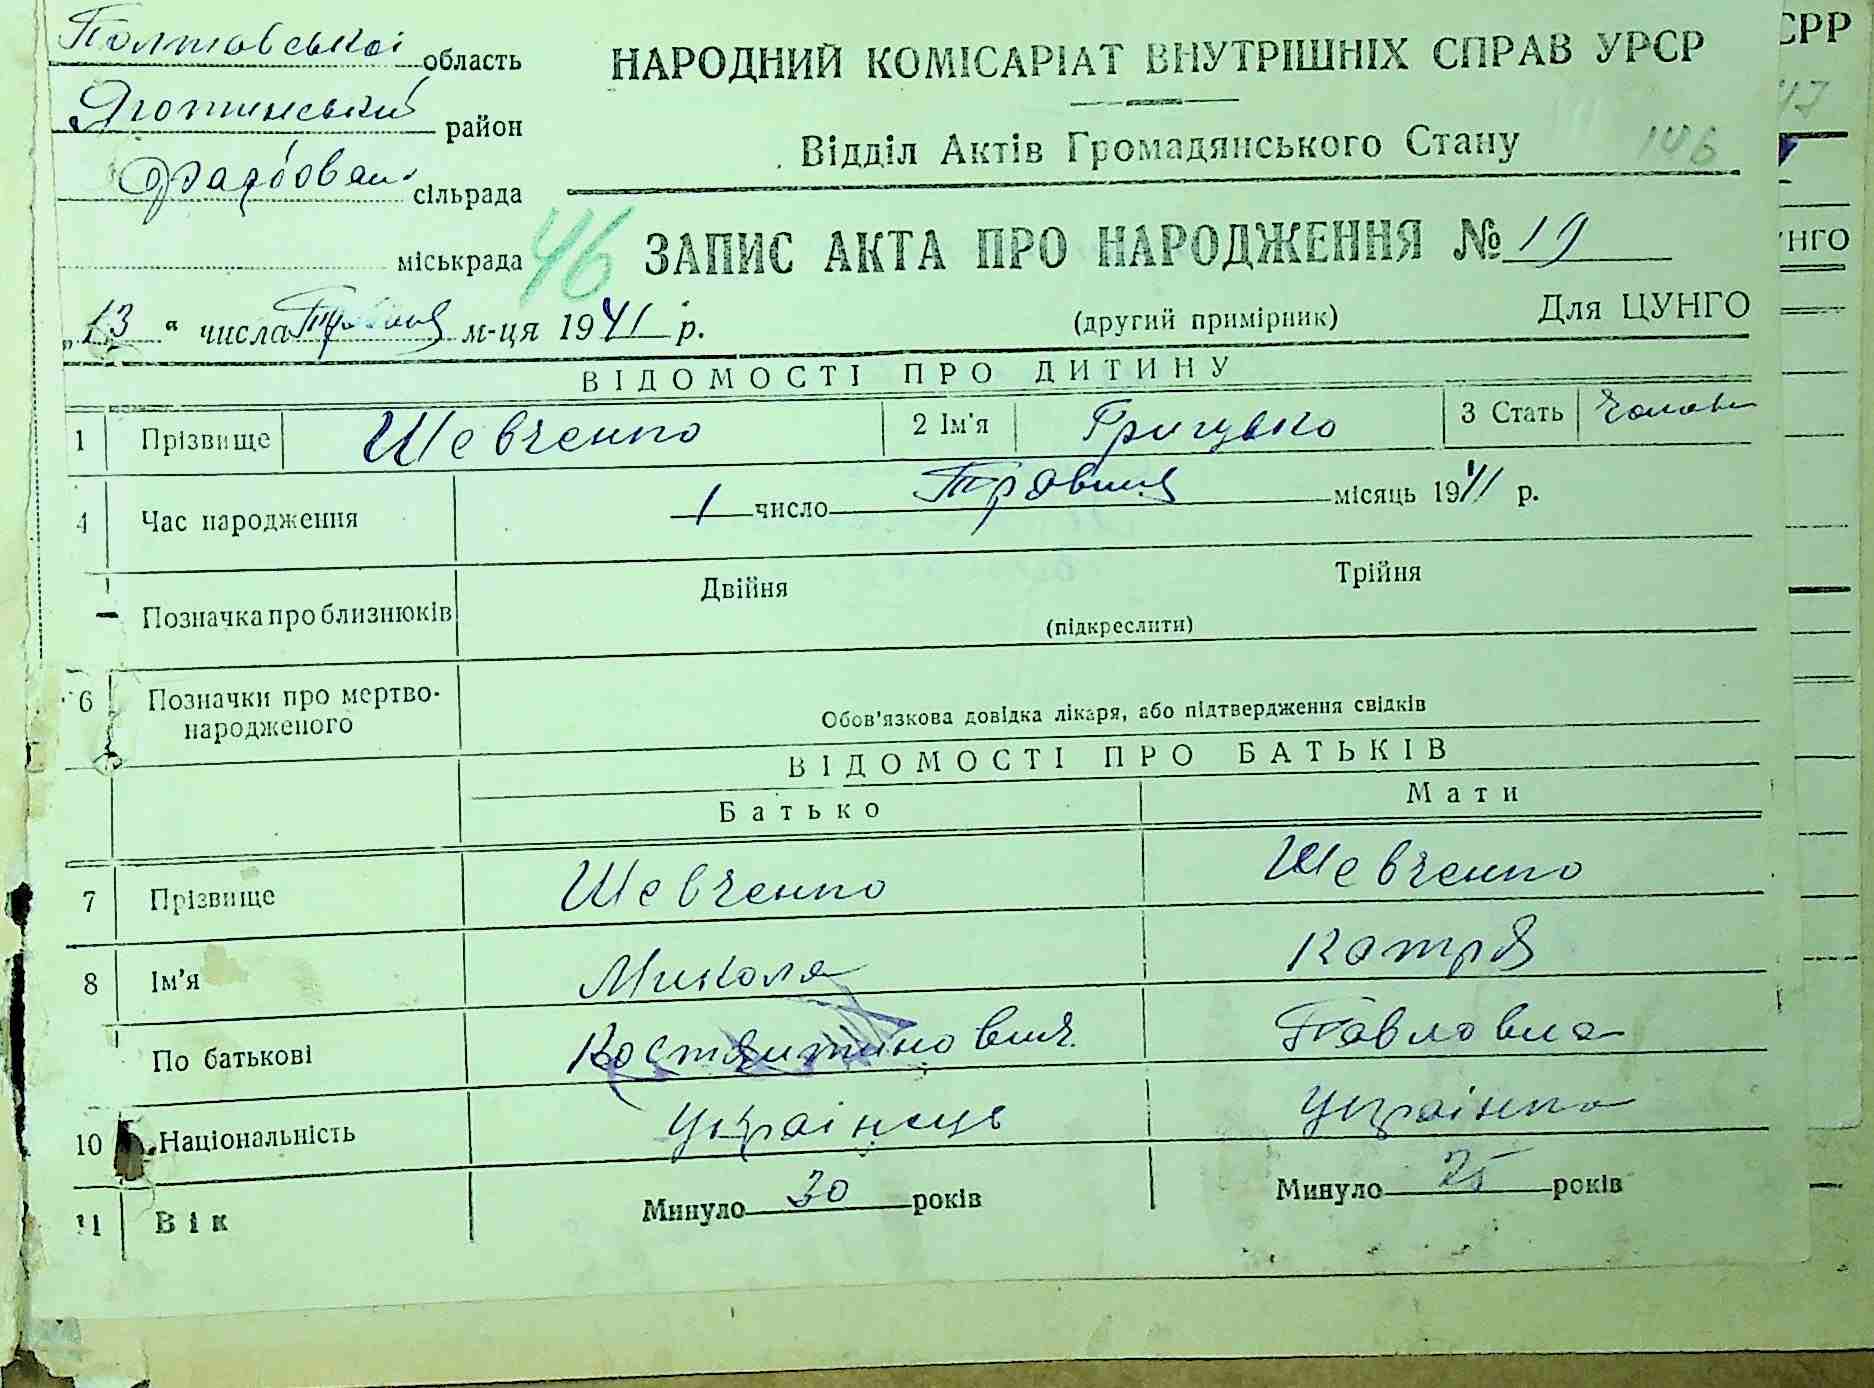 Полтавської область
НАРОДНИЙ КОМІСАРІАТ ВНУТРІШНІХ СПРАВ УРСР
Яготинський район
Відділ Актів Громадянського Стану 146
сільрада
міськрада 46 ЗАПИС АКТА ПРО НАРОДЖЕННЯ № 19
„13 “ числа Травня м-ця 1941 р. (другий примірник) Для ЦУНГО
ВІДОМОСТІ ПРО ДИТИНУ
1 Прізвище Шевченко 2 Ім'я Грицько 3 Стать
4 Час народження 1 число Травня місяць 1941 р.
Позначка про близнюків Двійня Трійня
(підкреслити)
6 Позначки про мертво-
народженого Обов'язкова довідка лікаря, або підтвердження свідків
ВІДОМОСТІ ПРО БАТЬКІВ
Батько Мати
7 Прізвище Шевченко Шевченко
8 Ім'я Микола Катря
По батькові Костянтинович Павловна
10 Національність Українець Українка
11 Вік Минуло 30 років Минуло 25 років
СРР
УНГО